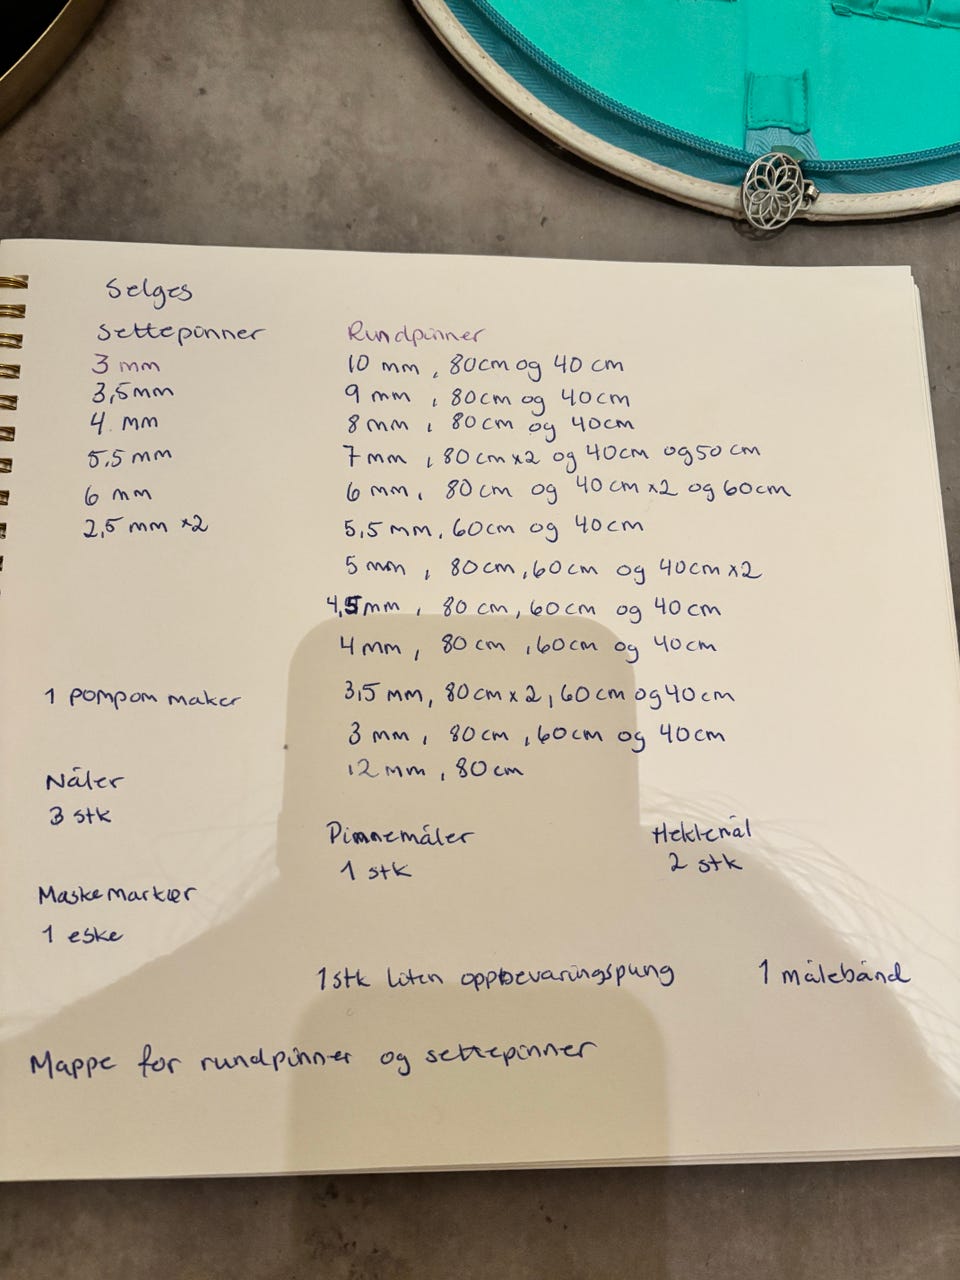 Selges
Settepinner
3 mm
3,5mm
4 mm
5,5 mm
6 mm
2,5 mm x2
Rundpinner
10 mm, 80cm og 40 cm
9 mm, 80cm og 40cm
8 mm, 80cm og 40cm
7 mm, 80cm x2 og 40cm og 50 cm
6 mm, 80cm og 40cm x2 og 60cm
5,5 mm, 60cm og 40cm
5 mm, 80cm, 60cm og 40cm x2
4,5 mm, 80 cm, 60cm og 40cm
4 mm, 80 cm, 60cm og 40cm
3,5 mm, 80cm x 2, 60 cm og 40cm
3 mm, 80cm, 60cm og 40cm
12 mm, 80cm
1 pompom maker
Nåler
3 stk
Maskemarkør
1 eske
Pinnemåler
1 stk
Heklenål
2 stk
1 stk liten oppbevaringspung
1 målebånd
Mappe for rundpinner og settepinner